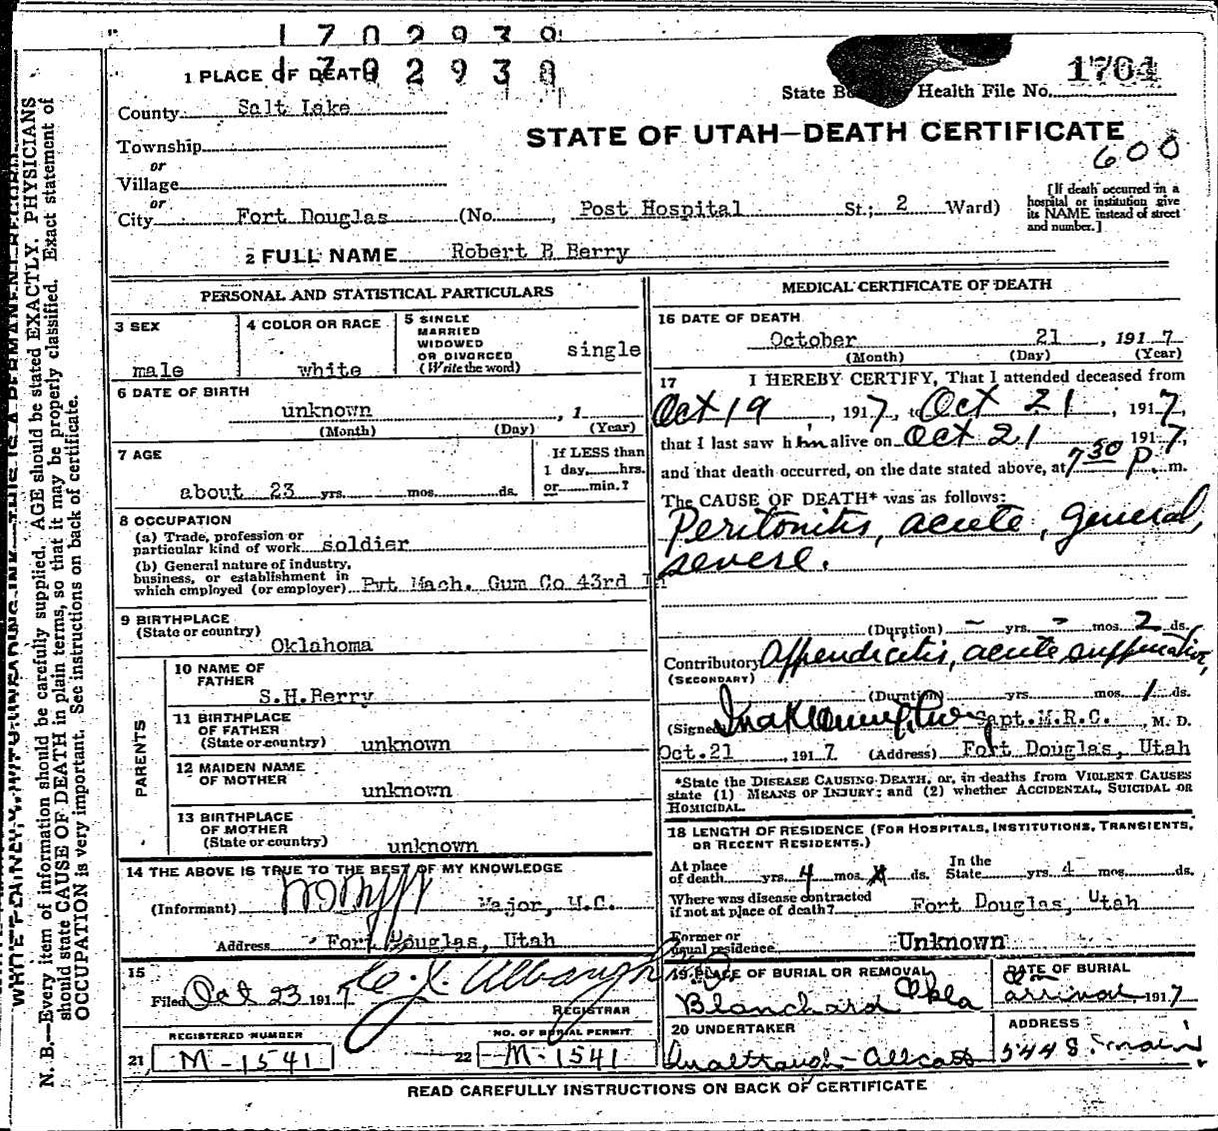 1702939
1702939
1 PLACE OF DEATH
State B Health File No. 1704
County Salt Lake
STATE OF UTAH—DEATH CERTIFICATE
600
Township
or
Village
or
City Fort Douglas (No. , Post Hospital St.; 2 Ward)
[If death occurred in a hospital or institution give its NAME instead of street and number.]
2 FULL NAME Robert B Berry
PERSONAL AND STATISTICAL PARTICULARS
3 SEX
male
4 COLOR OR RACE
white
5 SINGLE
MARRIED
WIDOWED
OR DIVORCED
(Write the word)
single
6 DATE OF BIRTH
unknown , 1
(Month) (Day) (Year)
7 AGE
about 23 yrs. mos. ds.
If LESS than
1 day, hrs.
or min.?
8 OCCUPATION
(a) Trade, profession or
particular kind of work soldier
(b) General nature of industry,
business, or establishment in
which employed (or employer) Pvt Mach. Gum Co 43rd In
9 BIRTHPLACE
(State or country)
Oklahoma
PARENTS
10 NAME OF
FATHER
S.H.Berry
11 BIRTHPLACE
OF FATHER
(State or country) unknown
12 MAIDEN NAME
OF MOTHER
unknown
13 BIRTHPLACE
OF MOTHER
(State or country) unknown
14 THE ABOVE IS TRUE TO THE BEST OF MY KNOWLEDGE
(Informant) Major, M.C.
Address Fort Douglas, Utah
15
Filed Oct 23 1917
REGISTRAR
REGISTERED NUMBER
21 M-1541
NO. OF BURIAL PERMIT
22 M-1541
MEDICAL CERTIFICATE OF DEATH
16 DATE OF DEATH
October 21 , 1917
(Month) (Day) (Year)
17 I HEREBY CERTIFY, That I attended deceased from
Oct 19 , 1917, to Oct 21 , 1917,
that I last saw him alive on Oct 21 1917,
and that death occurred, on the date stated above, at 7 30 P. m.
The CAUSE OF DEATH* was as follows:
Peritonitis, acute, general,
severe.
(Duration) – yrs. – mos. 2 ds.
Contributory Appendicitis, acute suppurative,
(SECONDARY)
(Duration) yrs. mos. 1 ds.
(Signed) Capt.M.R.C. , M. D.
Oct.21 , 1917 (Address) Fort Douglas, Utah
*State the DISEASE CAUSING DEATH, or, in deaths from VIOLENT CAUSES
state (1) MEANS OF INJURY; and (2) whether ACCIDENTAL, SUICIDAL OR
HOMICIDAL.
18 LENGTH OF RESIDENCE (FOR HOSPITALS, INSTITUTIONS, TRANSIENTS,
OR RECENT RESIDENTS.)
At place
of death yrs. 4 mos. ds.
In the
State yrs. 4 mos. ds.
Where was disease contracted
if not at place of death? Fort Douglas, Utah
Former or
usual residence Unknown
19 PLACE OF BURIAL OR REMOVAL
Blanchard Okla
DATE OF BURIAL
On
arrival 1917
20 UNDERTAKER
ADDRESS
544 S. main
READ CAREFULLY INSTRUCTIONS ON BACK OF CERTIFICATE
WRITE PLAINLY, WITH UNFADING INK—THIS IS A PERMANENT RECORD
N. B.—Every item of information should be carefully supplied. AGE should be stated EXACTLY. PHYSICIANS
should state CAUSE OF DEATH in plain terms, so that it may be properly classified. Exact statement of
OCCUPATION is very important. See instructions on back of certificate.